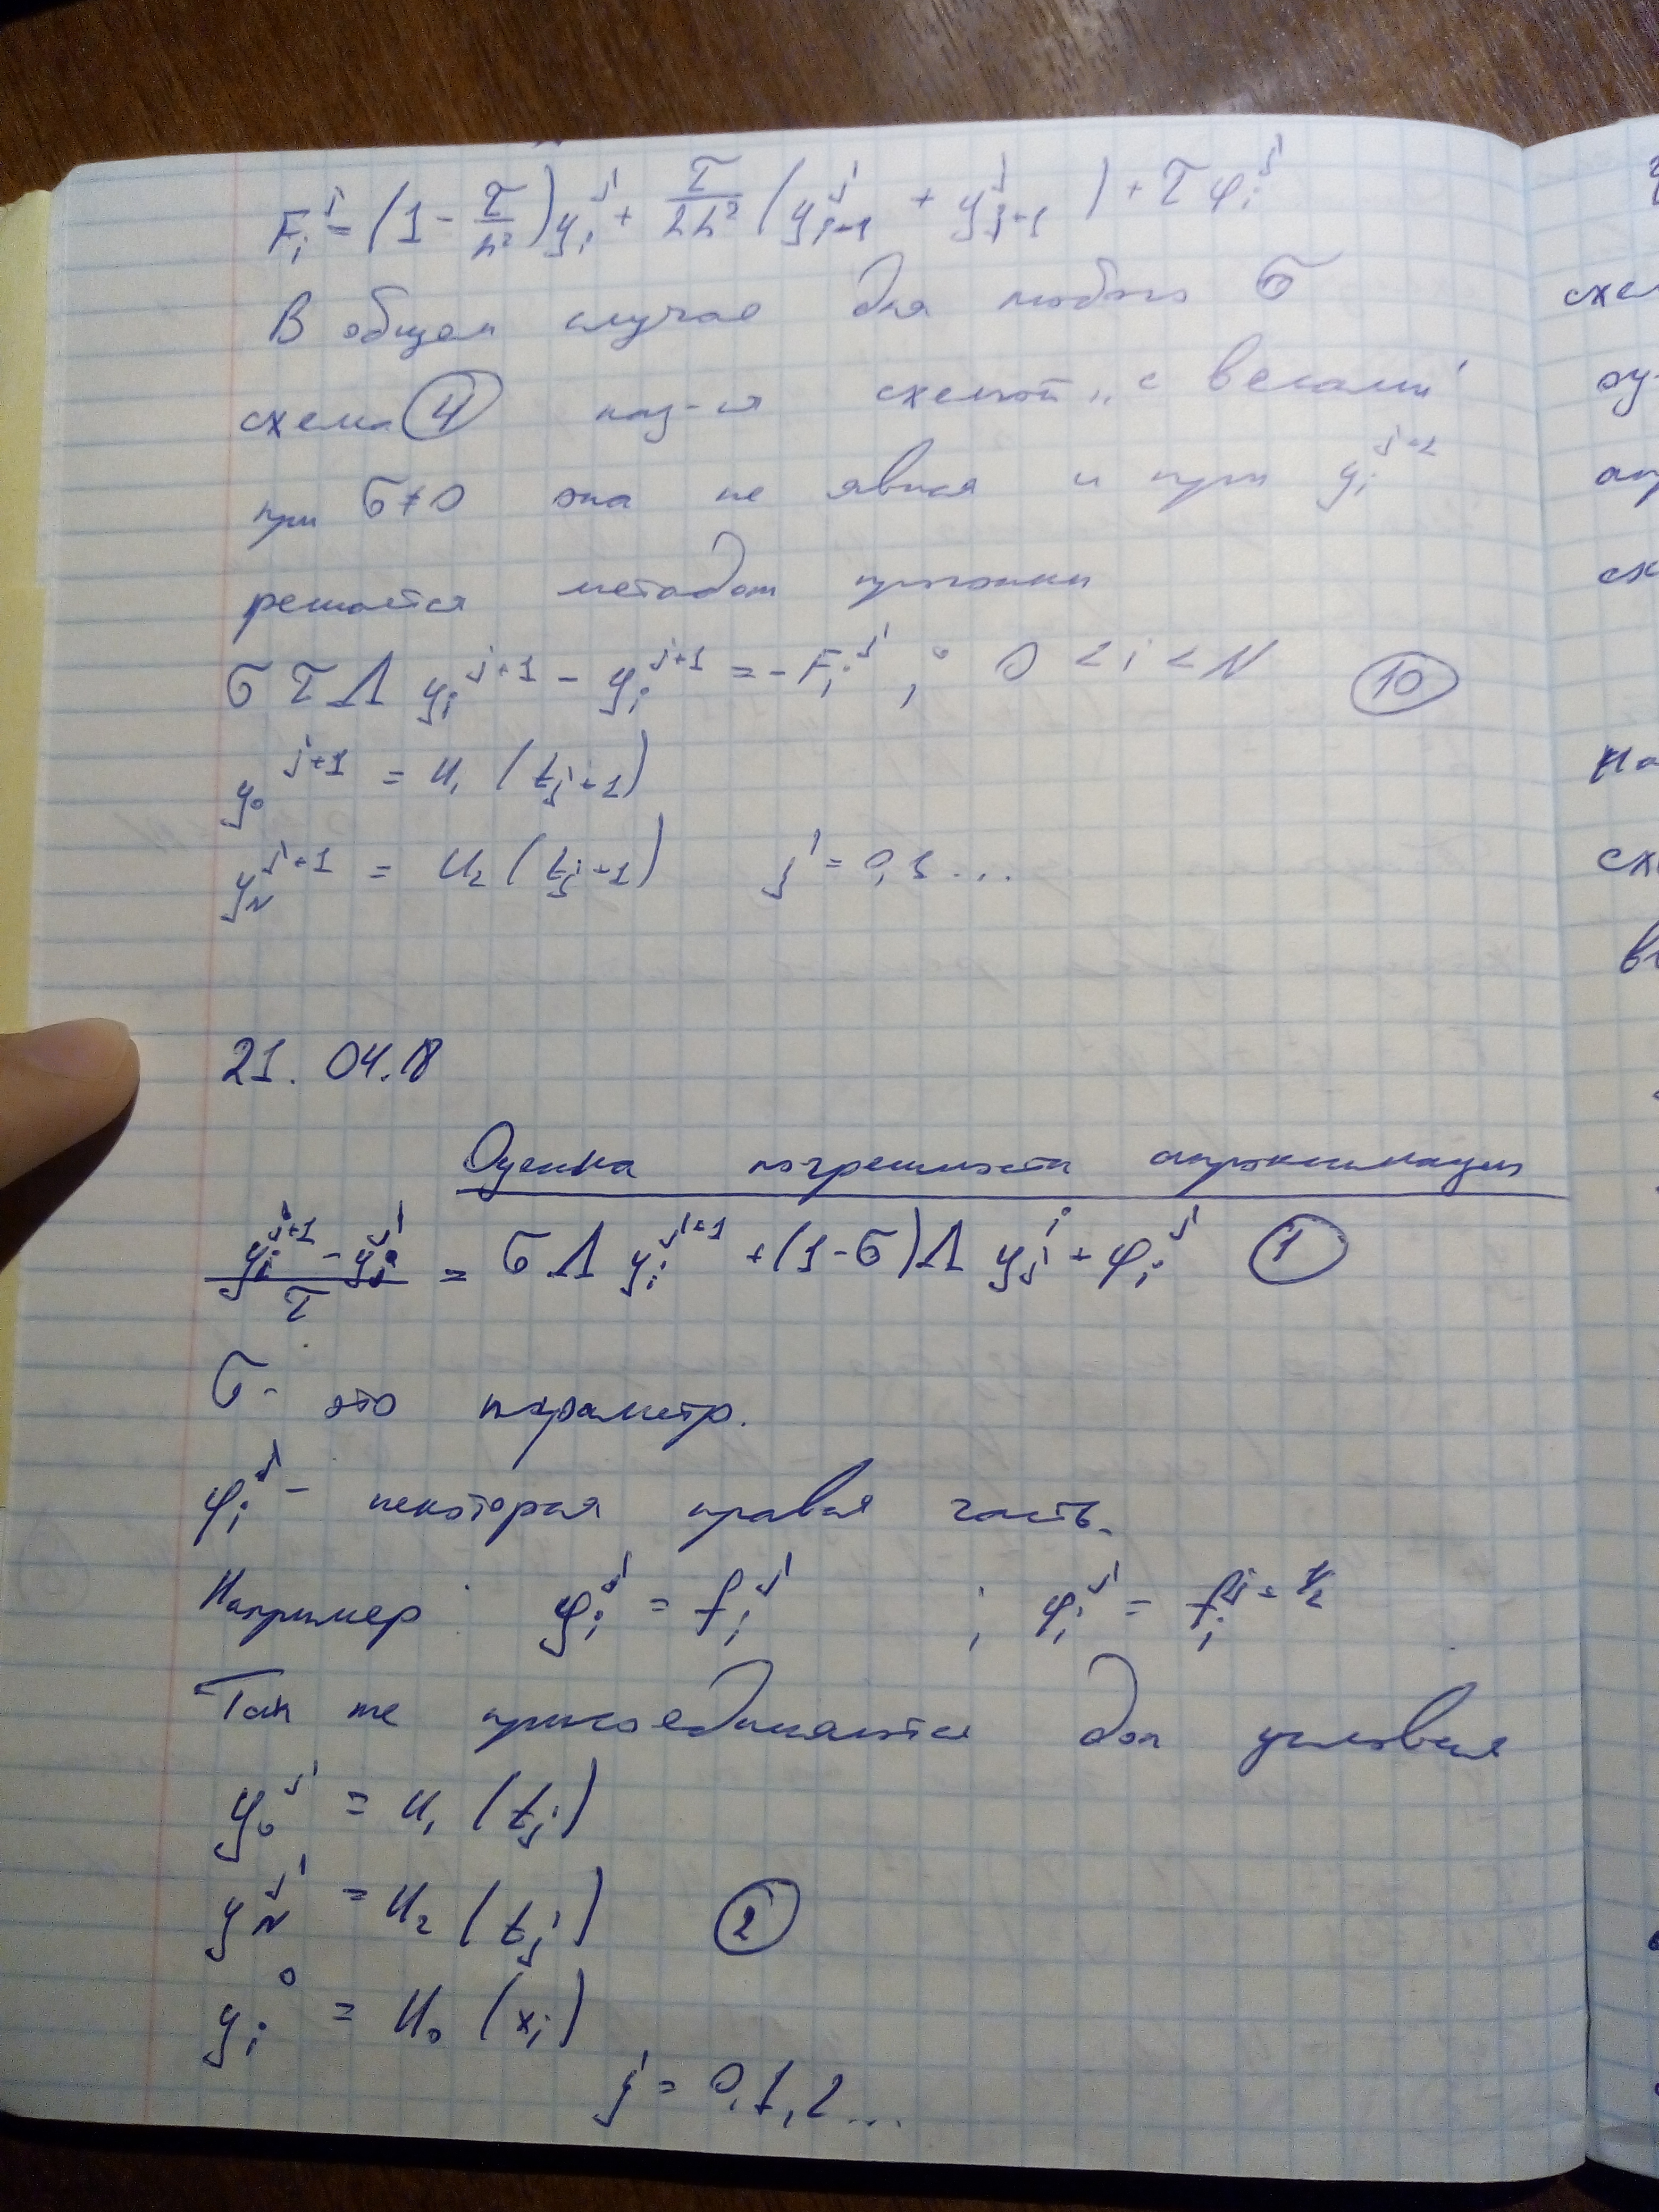 F_i^j = (1 - τ/h²) y_i^j + τ/2h² (y_{i-1}^j + y_{j+1}^j) + τ φ_i^j
В общем случае для любого σ
схема ④ наз-ся схемой „с весами"
при σ ≠ 0 она не явная и при y_i^{j+1}
решается методом прогонки
σ τ Λ y_i^{j+1} - y_i^{j+1} = -F_i^j ; 0 < i < N ⑩
y_0^{j+1} = u_1 (t_{j+1})
y_N^{j+1} = u_2 (t_{j+1}) j = 0,1...
21.04.18
Оценка погрешности аппроксимации
(y_i^{j+1} - y_i^j)/τ = σ Λ y_i^{j+1} + (1-σ) Λ y_j^j + φ_i^j ①
σ - это параметр.
φ_i^j - некоторая правая часть.
Например : φ_i^j = f_i^j ; φ_i^j = f_i^{j+1/2}
Так же присоединяются доп условия
y_0^j = u_1 (t_j)
y_N^j = u_2 (t_j) ②
y_i^0 = u_0 (x_i)
j = 0,1,2...
схе
оу
ап
сх
На
сх